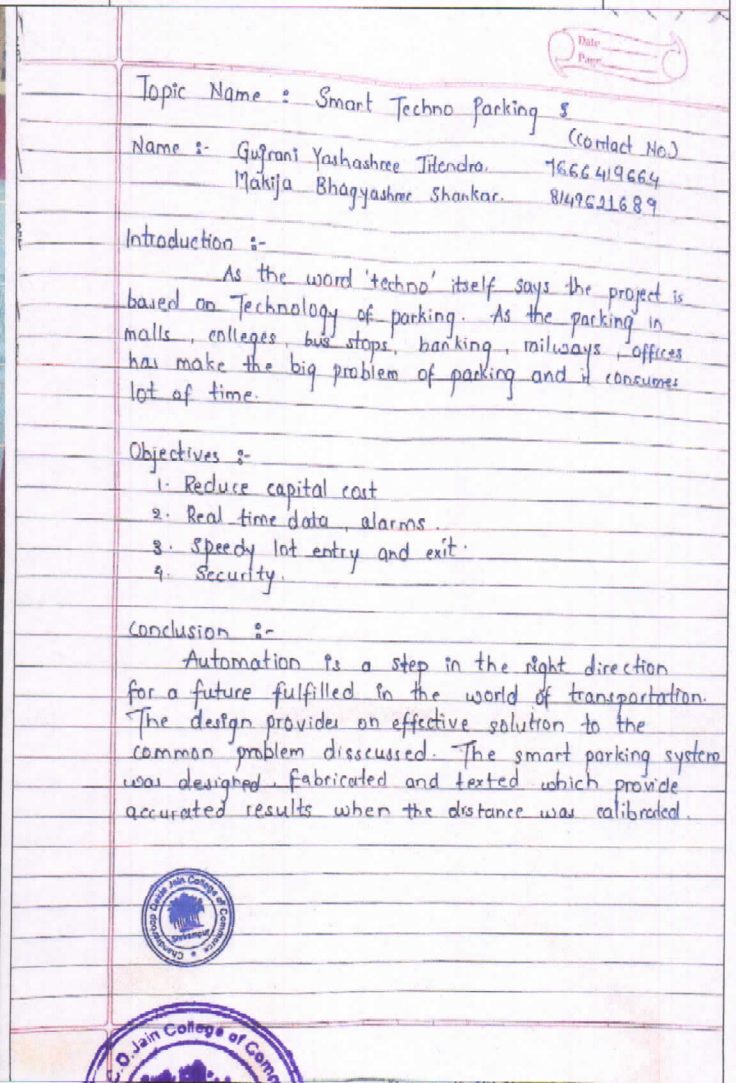 Date
Page
Topic Name : Smart Techno Parking :
(Contact No.)
Name :- Gujrani Yashashree Jitendra. 7666419664
Makija Bhagyashree Shankar. 8149621689
Introduction :-
As the word 'techno' itself says the project is
based on Technology of parking. As the parking in
malls, colleges, bus stops, banking, railways, offices
has make the big problem of parking and it consumes
lot of time.
Objectives :-
1. Reduce capital cost
2. Real time data, alarms.
3. Speedy lot entry and exit.
4. Security.
Conclusion :-
Automation is a step in the right direction
for a future fulfilled in the world of transportation.
The design provides an effective solution to the
common problem disscussed. The smart parking system
was designed, fabricated and texted which provide
accurated results when the distance was calibrated.
Chandraroop Dakle Jain College of Commerce
Shrirampur
C.D. Jain College of Comm